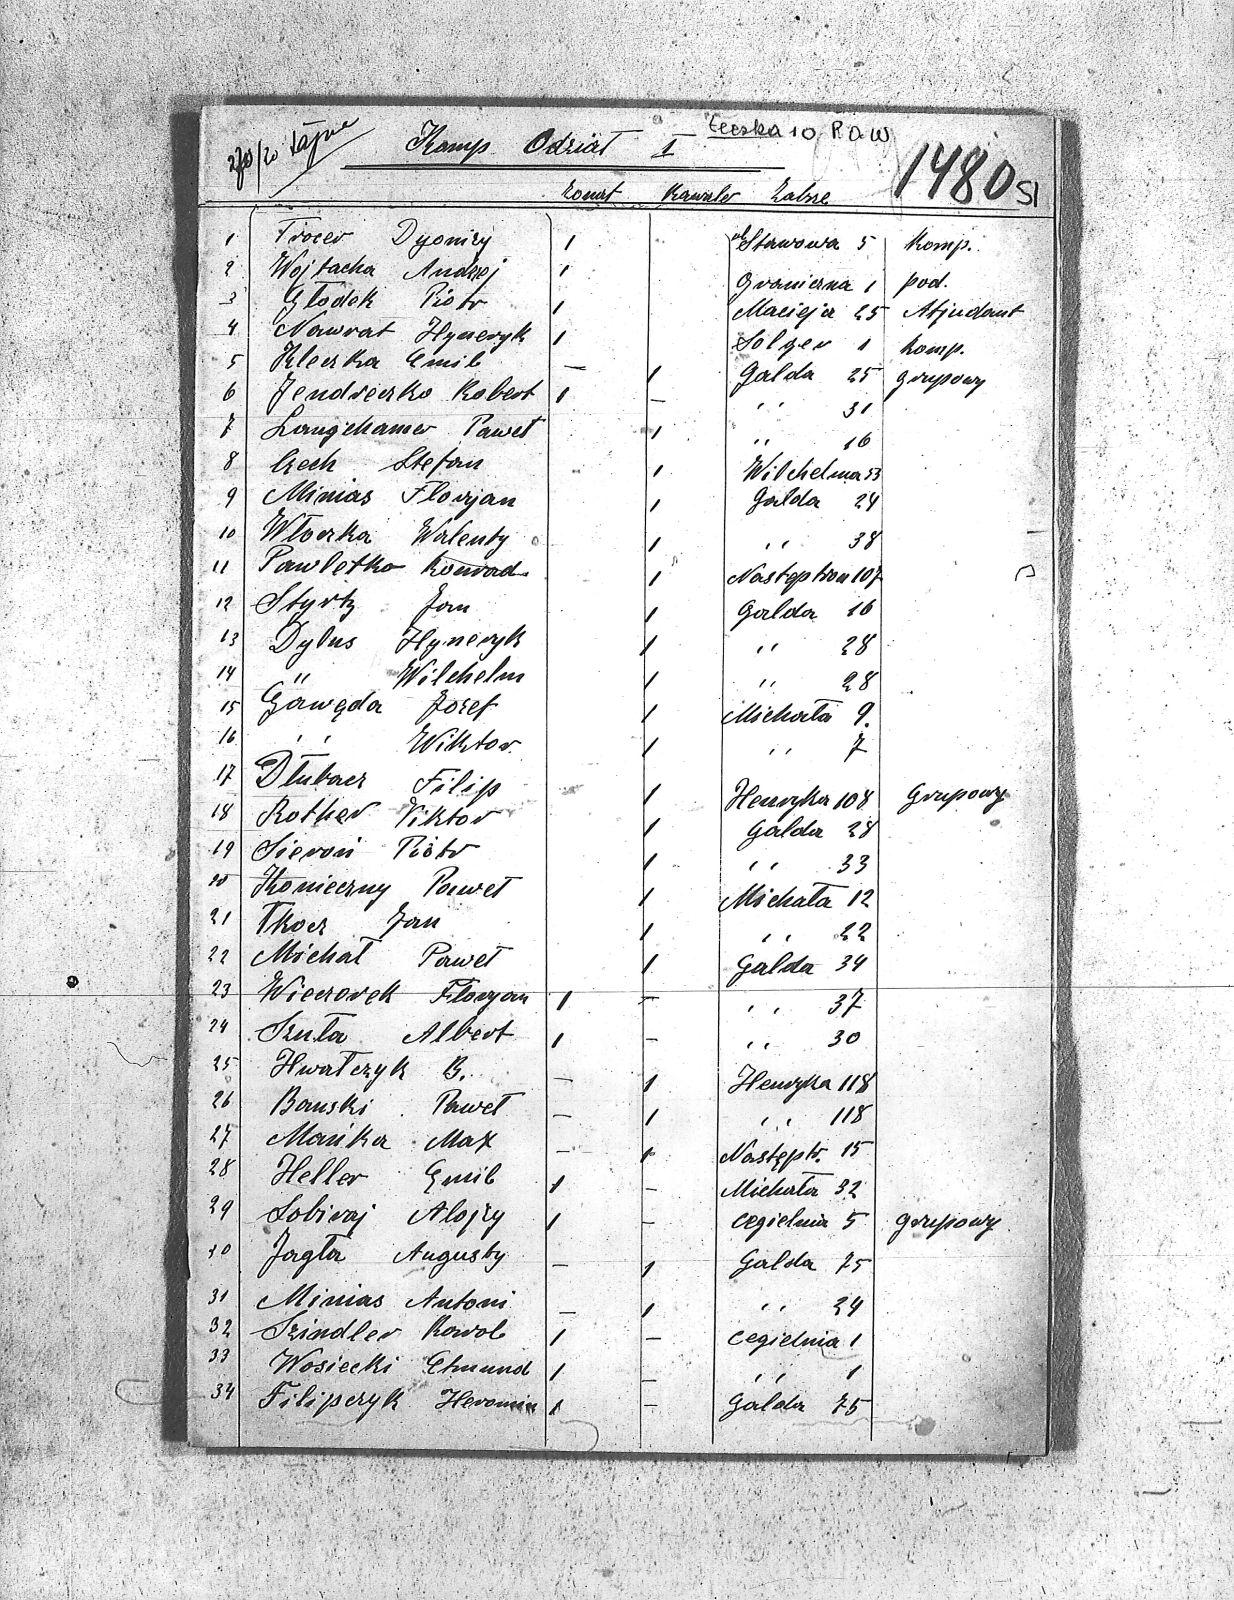 270/20 tajne
Komp Odział I Teczka 10 P.O.W
1480 Sl
Żonat Kawaler Zabrze
1 Trocer Dyonizy 1 ul Stawowa 5 Komp.
2 Wojtacha Andrzej 1 Graniczna 1 pod.
3 Głodek Piotr 1 Macieja 25 Atjudant
4 Nawrat Hyneryk 1 Solger 1 komp.
5 Kleczka Emil — 1 Galda 25 grupowy
6 Jendreczko Robert 1 — ,, 31
7 Langhamer Paweł 1 ,, 16
8 Czech Stefan 1 Wilchelma 53
9 Minias Florjan 1 Galda 24
10 Włoczka Walenty 1 ,, 38
11 Pawletko Konrad 1 Następtron 107
12 Styrtz Jan 1 Galda 16
13 Dylus Hyneryk 1 ,, 28
14 ,, Wilchelm 1 ,, 28
15 Gawęda Jozef 1 Michała 9.
16 ,, Wiktor 1 ,, 7
17 Dłubacz Filip 1 Henryka 108 Grupowy
18 Rother Viktor 1 Galda 28
19 Sieroń Piotr 1 ,, 33
20 Konieczny Paweł 1 Michała 12
21 Tkocz Jan 1 ,, 22
22 Michał Paweł 1 Galda 34
23 Wieczorek Florjan 1 — ,, 37
24 Szuła Albert 1 — ,, 30
25 Hwałczyk B. — 1 Henryka 118
26 Banski Paweł — 1 ,, 118
27 Mańka Max — 1 Następtr. 15
28 Heller Emil 1 — Michała 32
29 Sobiraj Alojzy 1 — cegielnia 5 grupowy
30 Jagła Augusty — 1 Galda 75
31 Minias Antoni — 1 ,, 24
32 Szindler Karol 1 — cegielnia 1
33 Wosiecki Etmund 1 — ,, 1
34 Filipczyk Heronim 1 — Galda 75